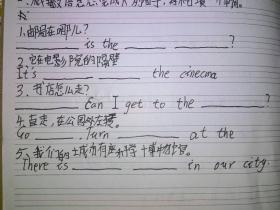 1.邮局在哪儿?
______ is the ______ ______?
2.它在电影院的隔壁
It's ______ ______ the cinema
3.书店怎么走?
______ can I get to the ______?
4.直走,在公园处左转.
Go ______. Turn ______ at the
5.我们的城市有座科学博物馆.
There is ______ ______ in our city.